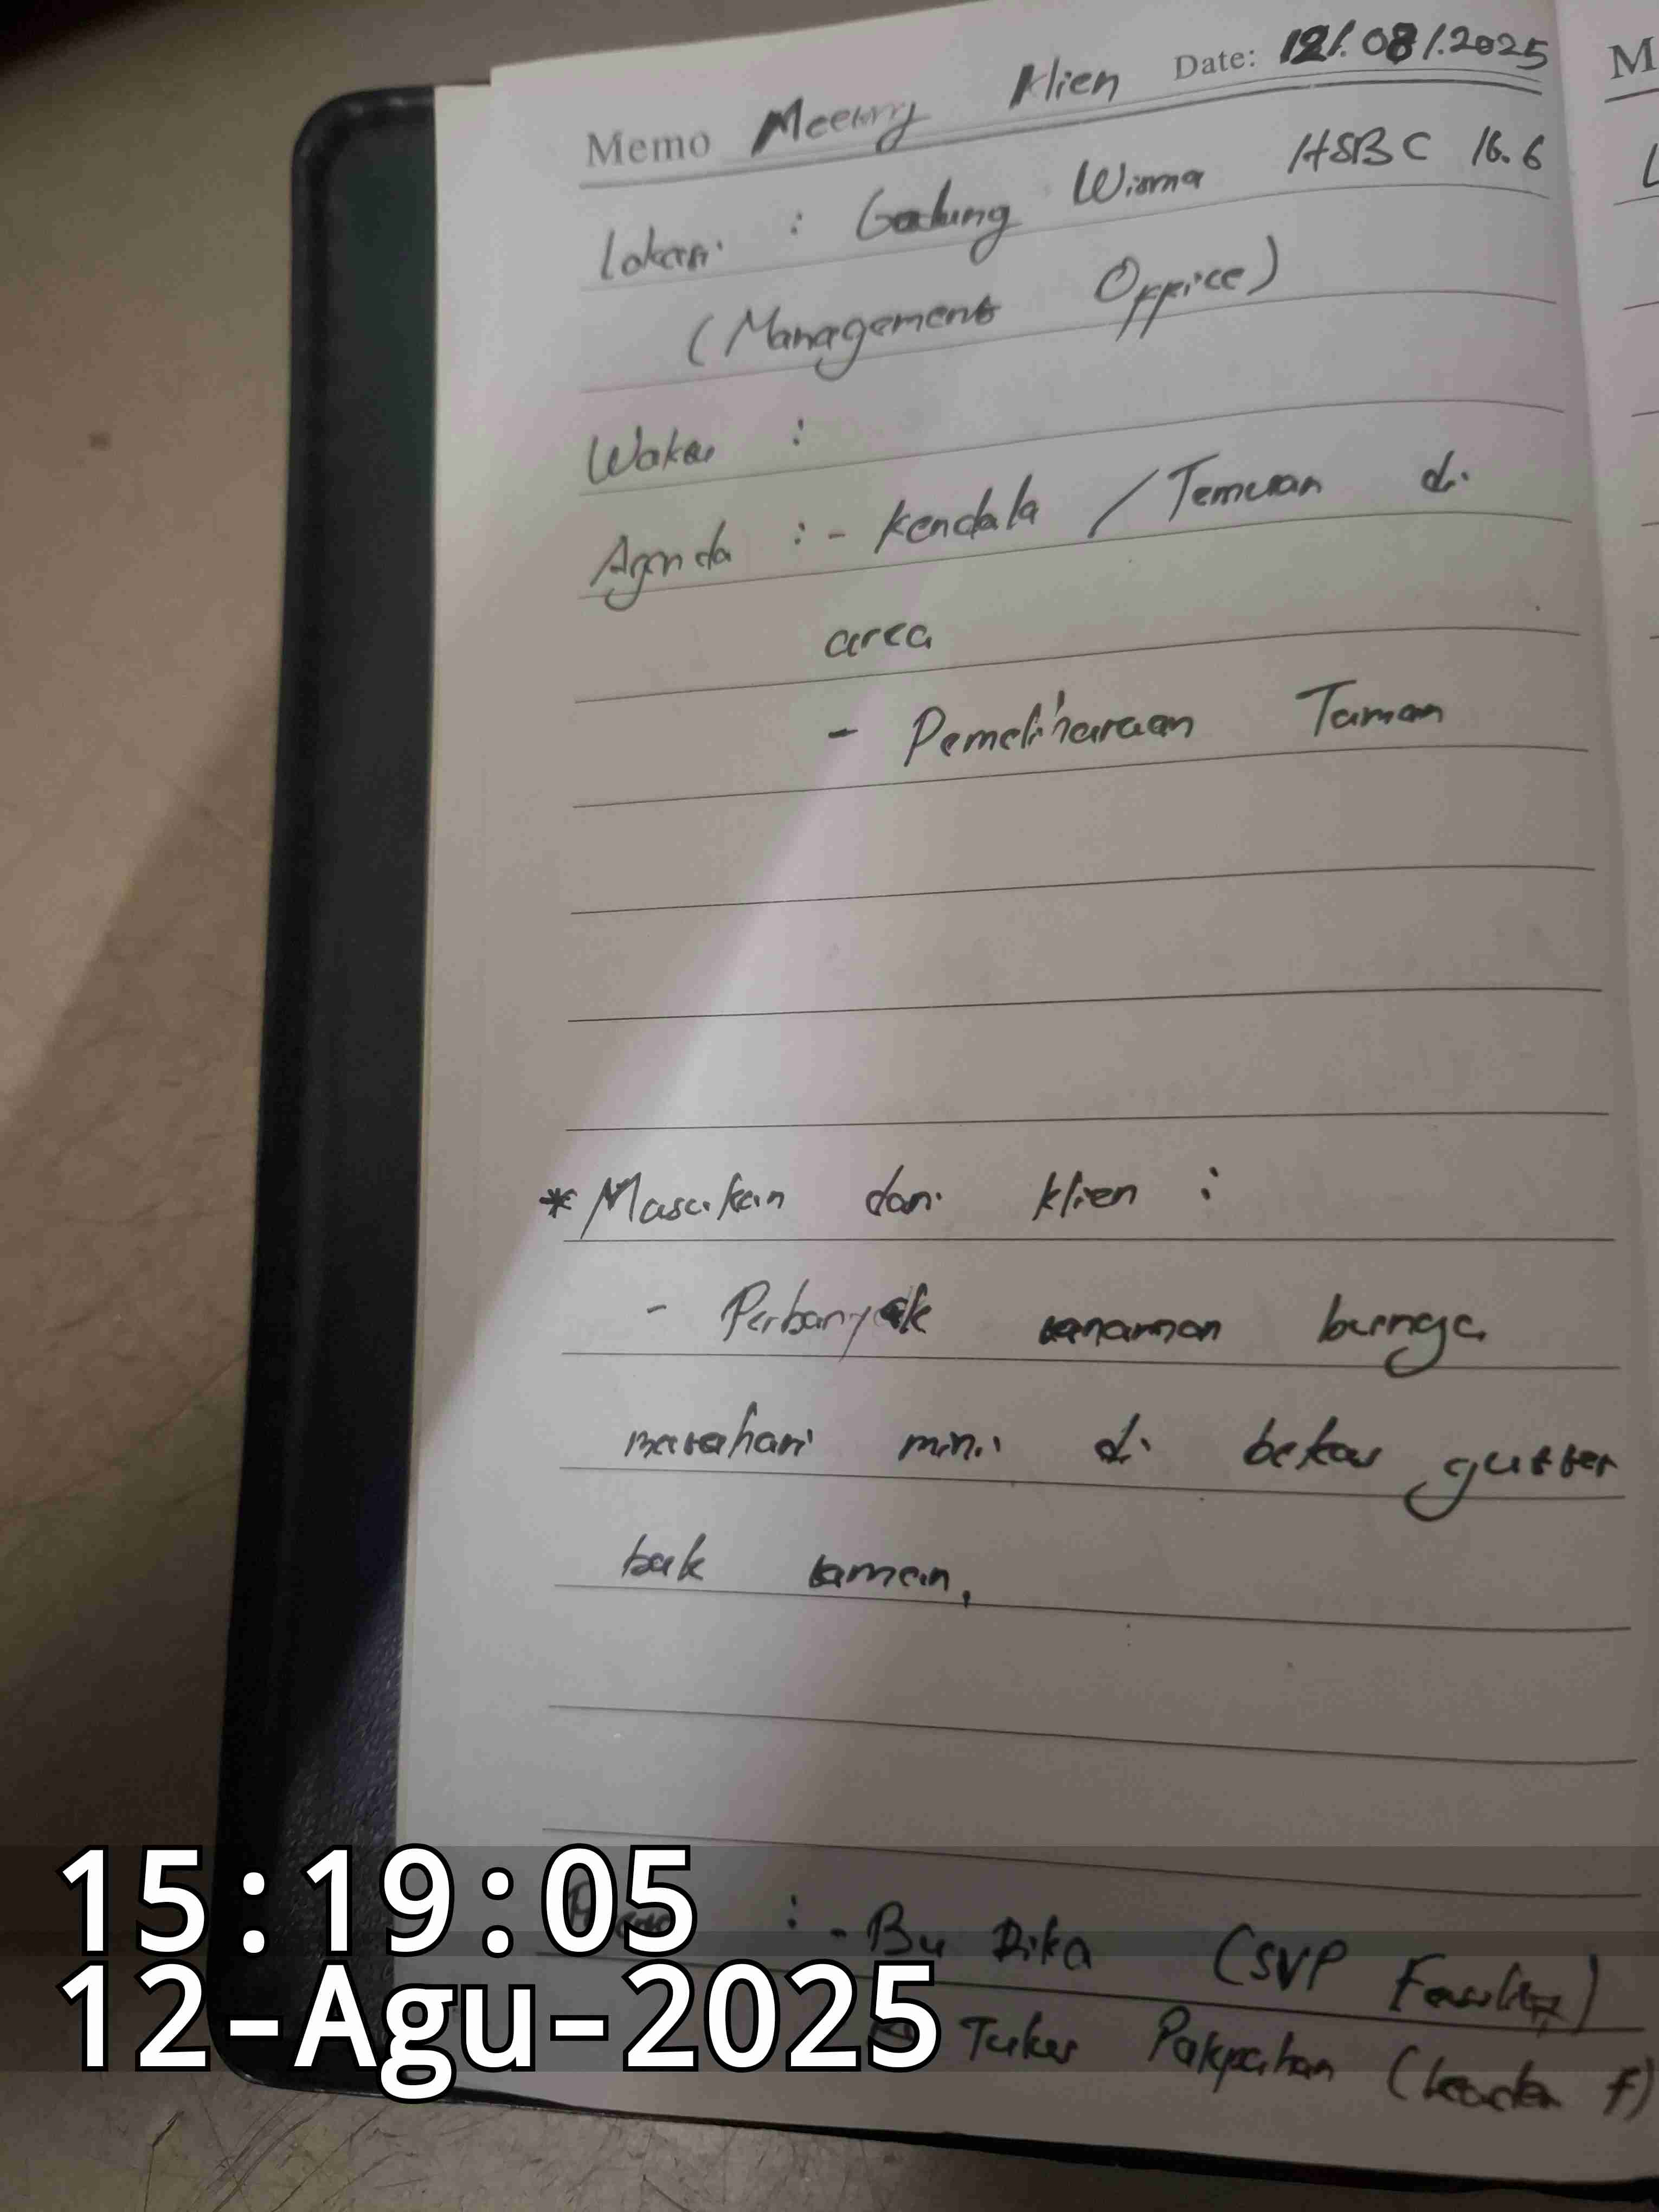 Memo Meeting Klien Date: 12/.08/.2025
Lokasi : Gedung Wisma HSBC 16.6
(Management Office)
Waktu :
Agenda : - Kendala / Temuan di
area
- Pemeliharaan Taman
* Masukan dari klien :
- Perbanyak tanaman bunga
matahari mini di bekas gutter
bak taman,
: - Bu Rika (SVP Fasility)
Pakpahan (Leader F)
15:19:05
12-Agu-2025